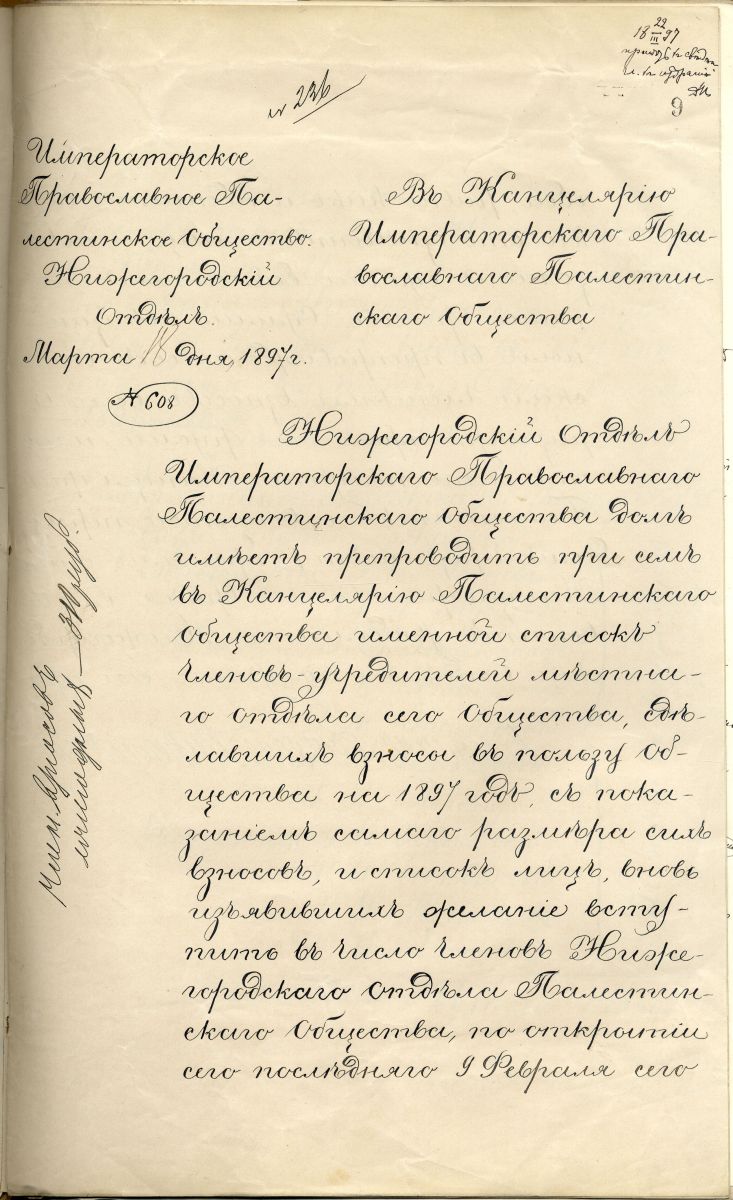 18 22/III 97
9
№ 236
Императорское
Православное Па-
лестинское Общество.
Нижегородскій
Отдѣлъ.
Марта 18 дня, 1897 г.
№ 608
Въ Канцелярію
Императорскаго Пра-
вославнаго Палестин-
скаго Общества
Нижегородскій Отдѣлъ
Императорскаго Православнаго
Палестинскаго Общества долгъ
имѣетъ препроводить при семъ
въ Канцелярію Палестинскаго
Общества именной списокъ
членовъ-учредителей мѣстна-
го отдѣла сего Общества, сдѣ-
лавшихъ взносы въ пользу Об-
щества на 1897 годъ, съ пока-
заніемъ самаго размѣра сихъ
взносовъ, и списокъ лицъ, вновь
изъявившихъ желаніе всту-
пить въ число членовъ Нижего-
городскаго Отдѣла Палестин-
скаго Общества, по открытіи
сего послѣдняго 9 Февраля сего